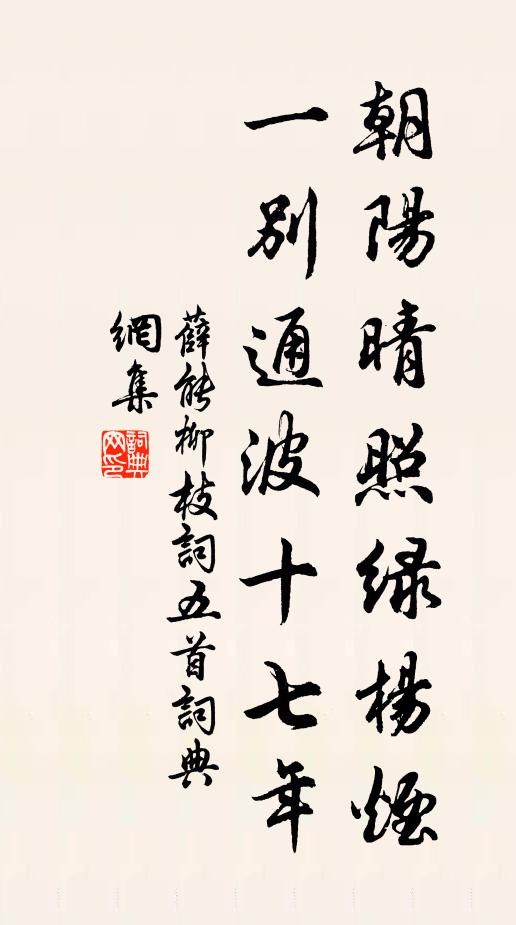 朝陽晴照綠楊煙
一別通波十七年
薛能柳枝詞五首詞典
網集
詞典
网印